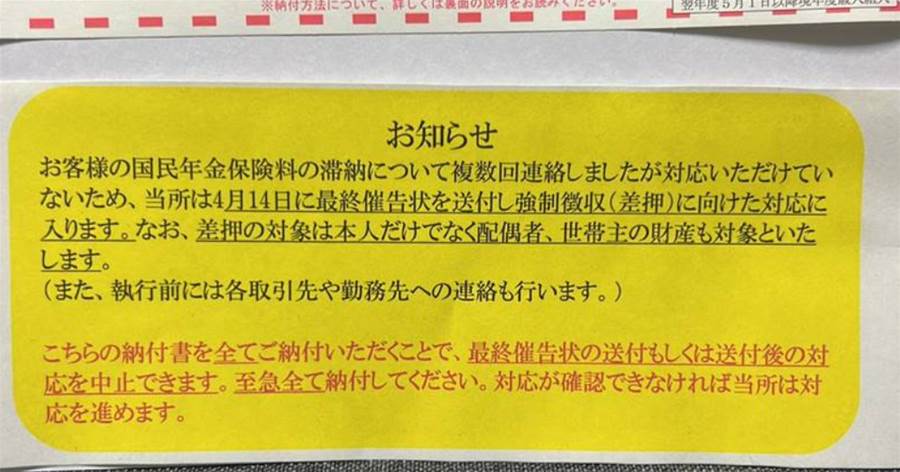 ※納付方法について、詳しくは裏面の説明をお読みください。
翌年度5月1日以降現年度歳入組入
お知らせ
お客様の国民年金保険料の滞納について複数回連絡しましたが対応いただけてい
ないため、当所は4月14日に最終催告状を送付し強制徴収(差押)に向けた対応に
入ります。なお、差押の対象は本人だけでなく配偶者、世帯主の財産も対象といた
します。
(また、執行前には各取引先や勤務先への連絡も行います。)
こちらの納付書を全てご納付いただくことで、最終催告状の送付もしくは送付後の対
応を中止できます。至急全て納付してください。対応が確認できなければ当所は対
応を進めます。